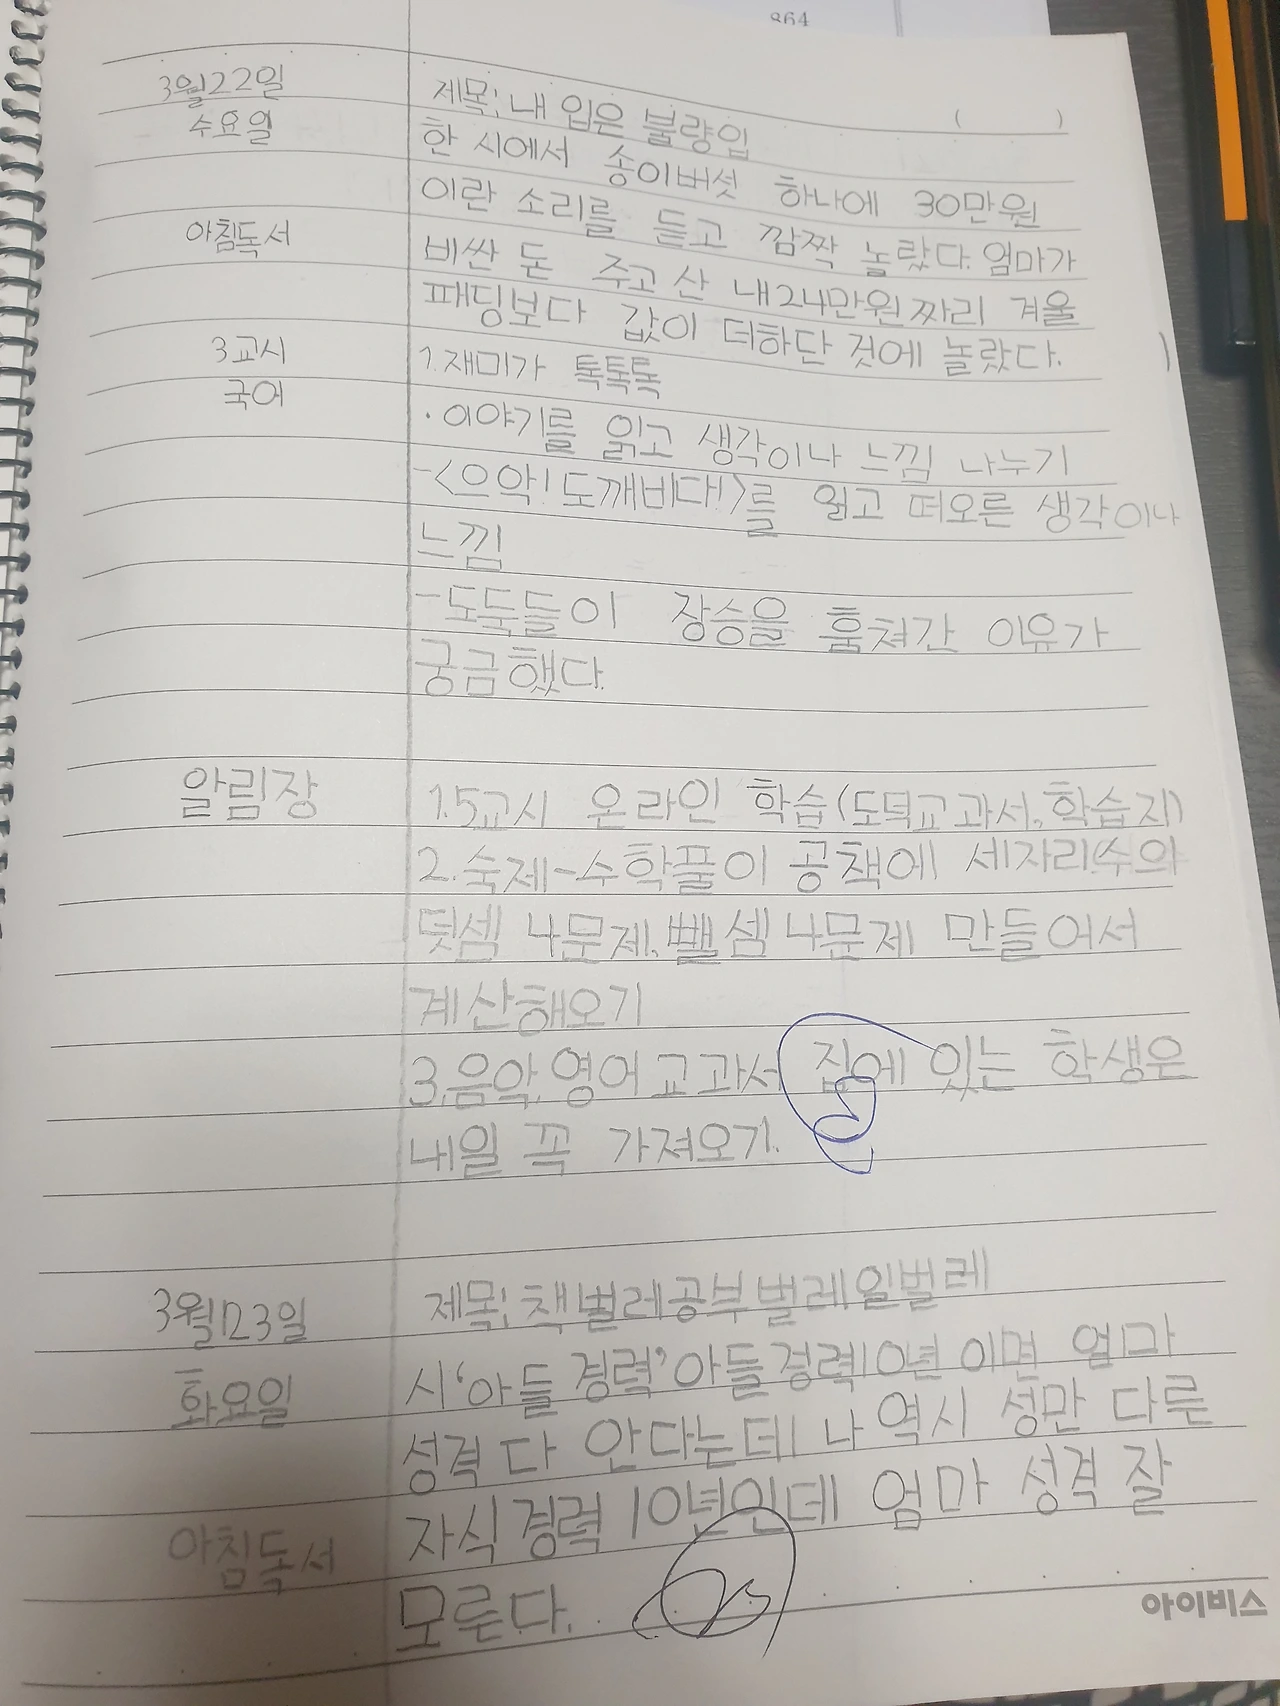 864
3월22일 제목; 내 입은 불량입 ( )
수요일 한 시에서 송이버섯 하나에 30만원
이란 소리를 듣고 깜짝 놀랐다. 엄마가
아침독서 비싼 돈 주고 산 내24만원짜리 겨울
패딩보다 값이 더하단 것에 놀랐다. )
3교시 1.재미가 톡톡톡
국어 · 이야기를 읽고 생각이나 느낌 나누기
-<으악! 도깨비다!>를 읽고 떠오른 생각이나
느낌
-도둑들이 장승을 훔쳐간 이유가
궁금했다.
알림장 1.5교시 온라인 학습(도덕교과서, 학습지)
2.숙제-수학풀이 공책에 세자리수의
덧셈 4문제, 뺄셈 4문제 만들어서
계산해오기
3.음악, 영어교과서 집에 있는 학생은
내일 꼭 가져오기.
3월23일 제목; 책벌레공부벌레일벌레
화요일 시'아들 경력'아들경력10년 이면 엄마
성격 다 안다는데 나 역시 성만 다른
아침독서 자식경력 10년인데 엄마 성격 잘
모른다.
아이비스